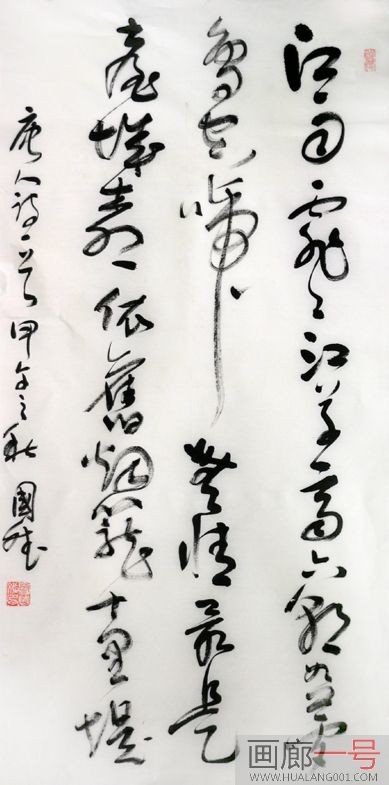 江雨霏霏江草齐六朝如梦
鸟空啼无情最是
台城柳依旧烟笼十里堤
唐人诗一首甲午之秋國成
画廊一号
WWW.HUALANG001.COM